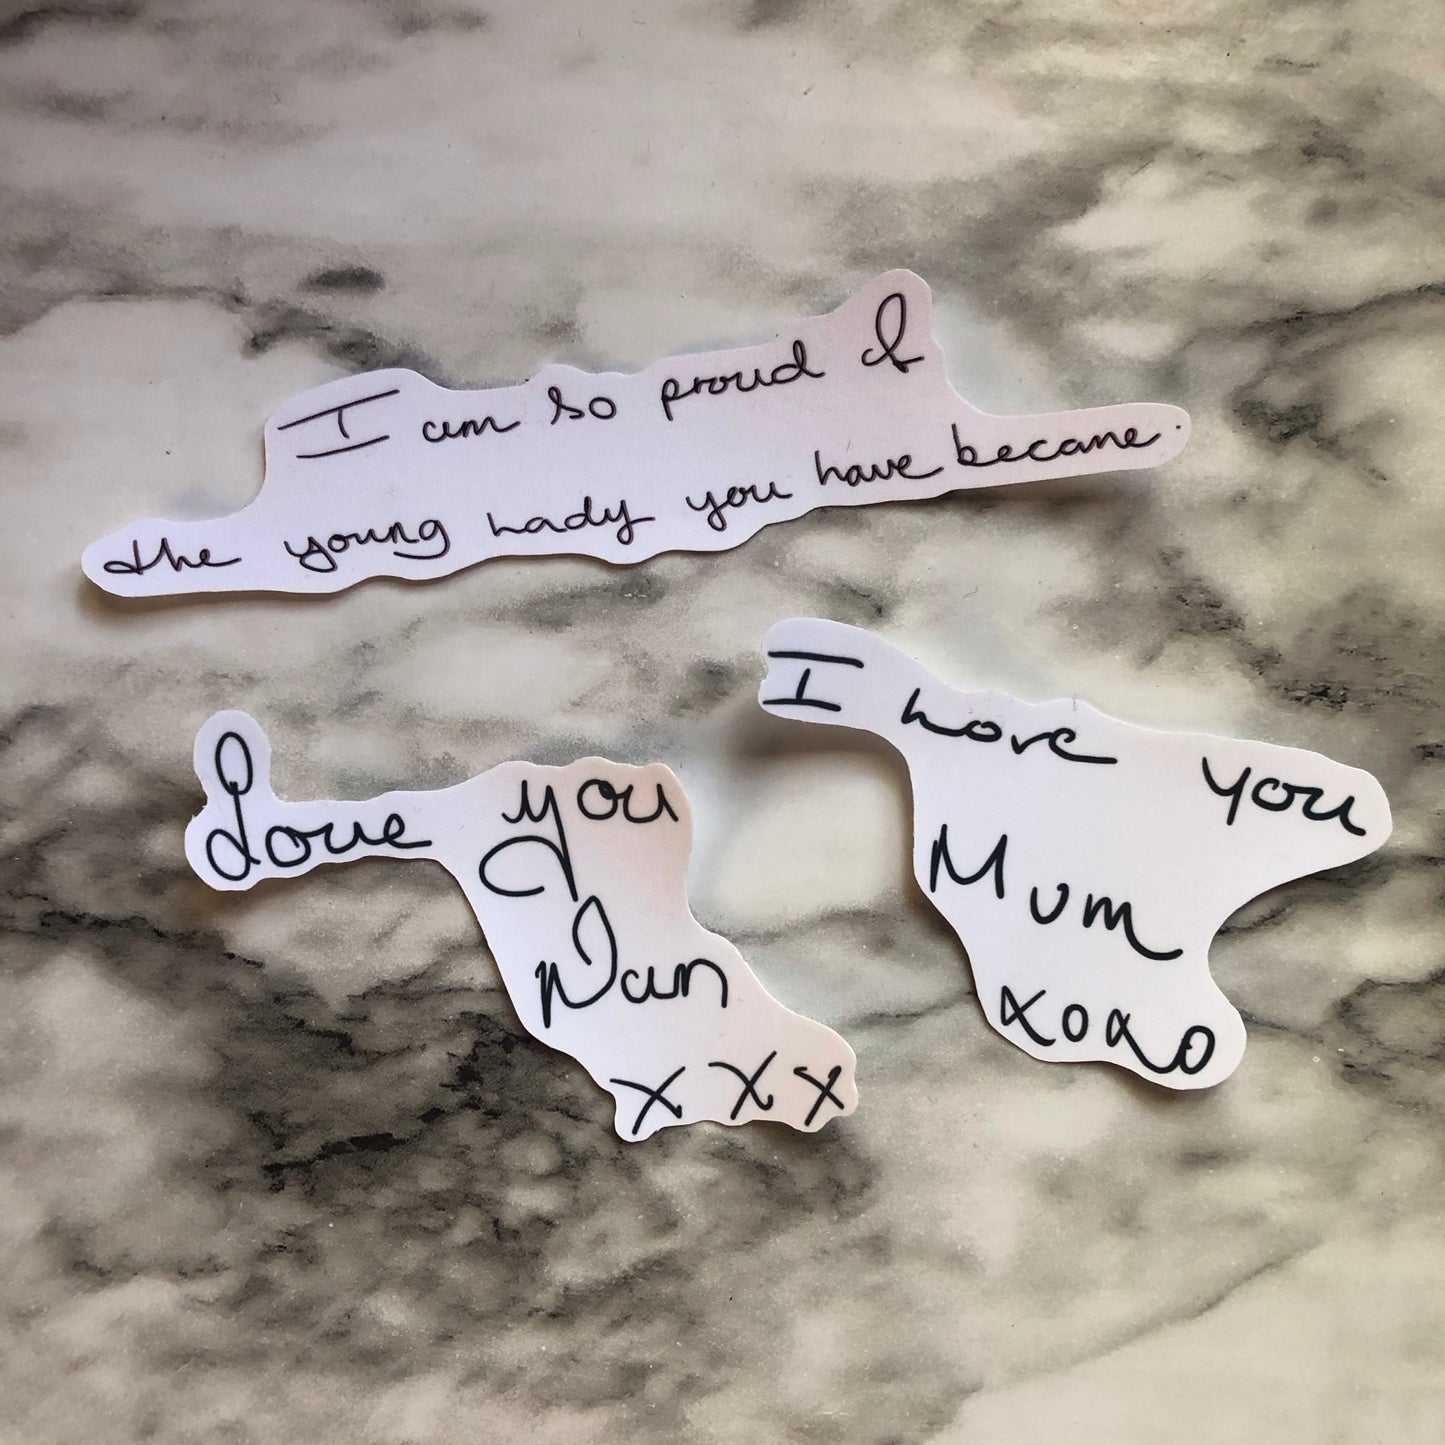 I am so proud of
the young lady you have became.
Love you
Nan
x x x
I love you
Mum
xoxo